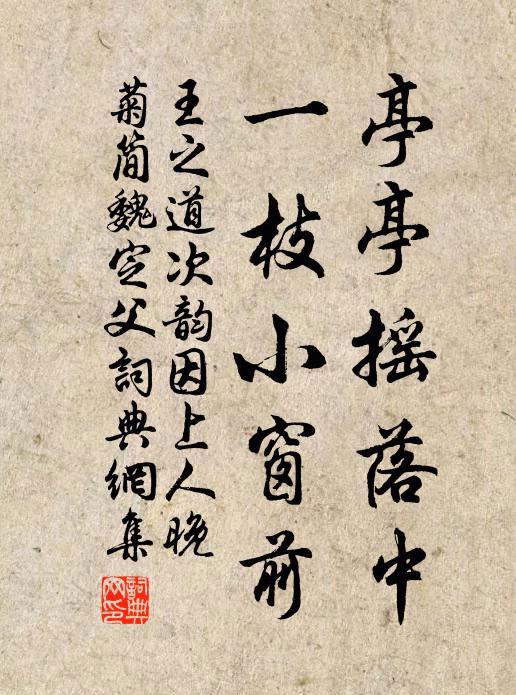 亭亭摇落中
一枝小窗前
王之道次韵因上人晚
菊简魏定父詞典網集
詞典网印